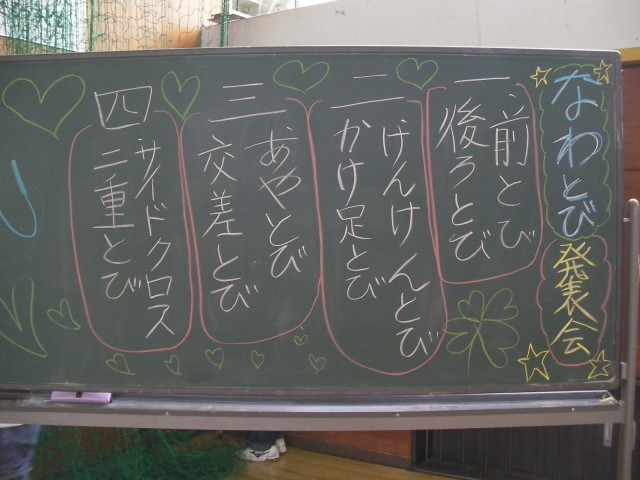 なわとび発表会
一、前とび
後ろとび
二 けんけんとび
かけ足とび
三 あやとび
交差とび
四 サイドクロス
二重とび